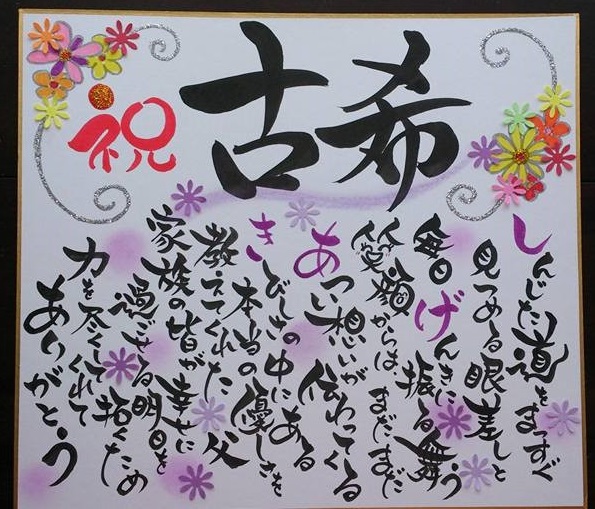 祝
古希
しんじた道をまっすぐ
見つめる眼差しと
毎日げんきに振る舞う
笑顔からは、まだまだ
あつい想いが伝わってくる
きびしさの中にある
本当の優しさを
教えてくれた父
家族の皆が幸せに
過ごせる明日を
拓くため
力を尽くしてくれて
ありがとう